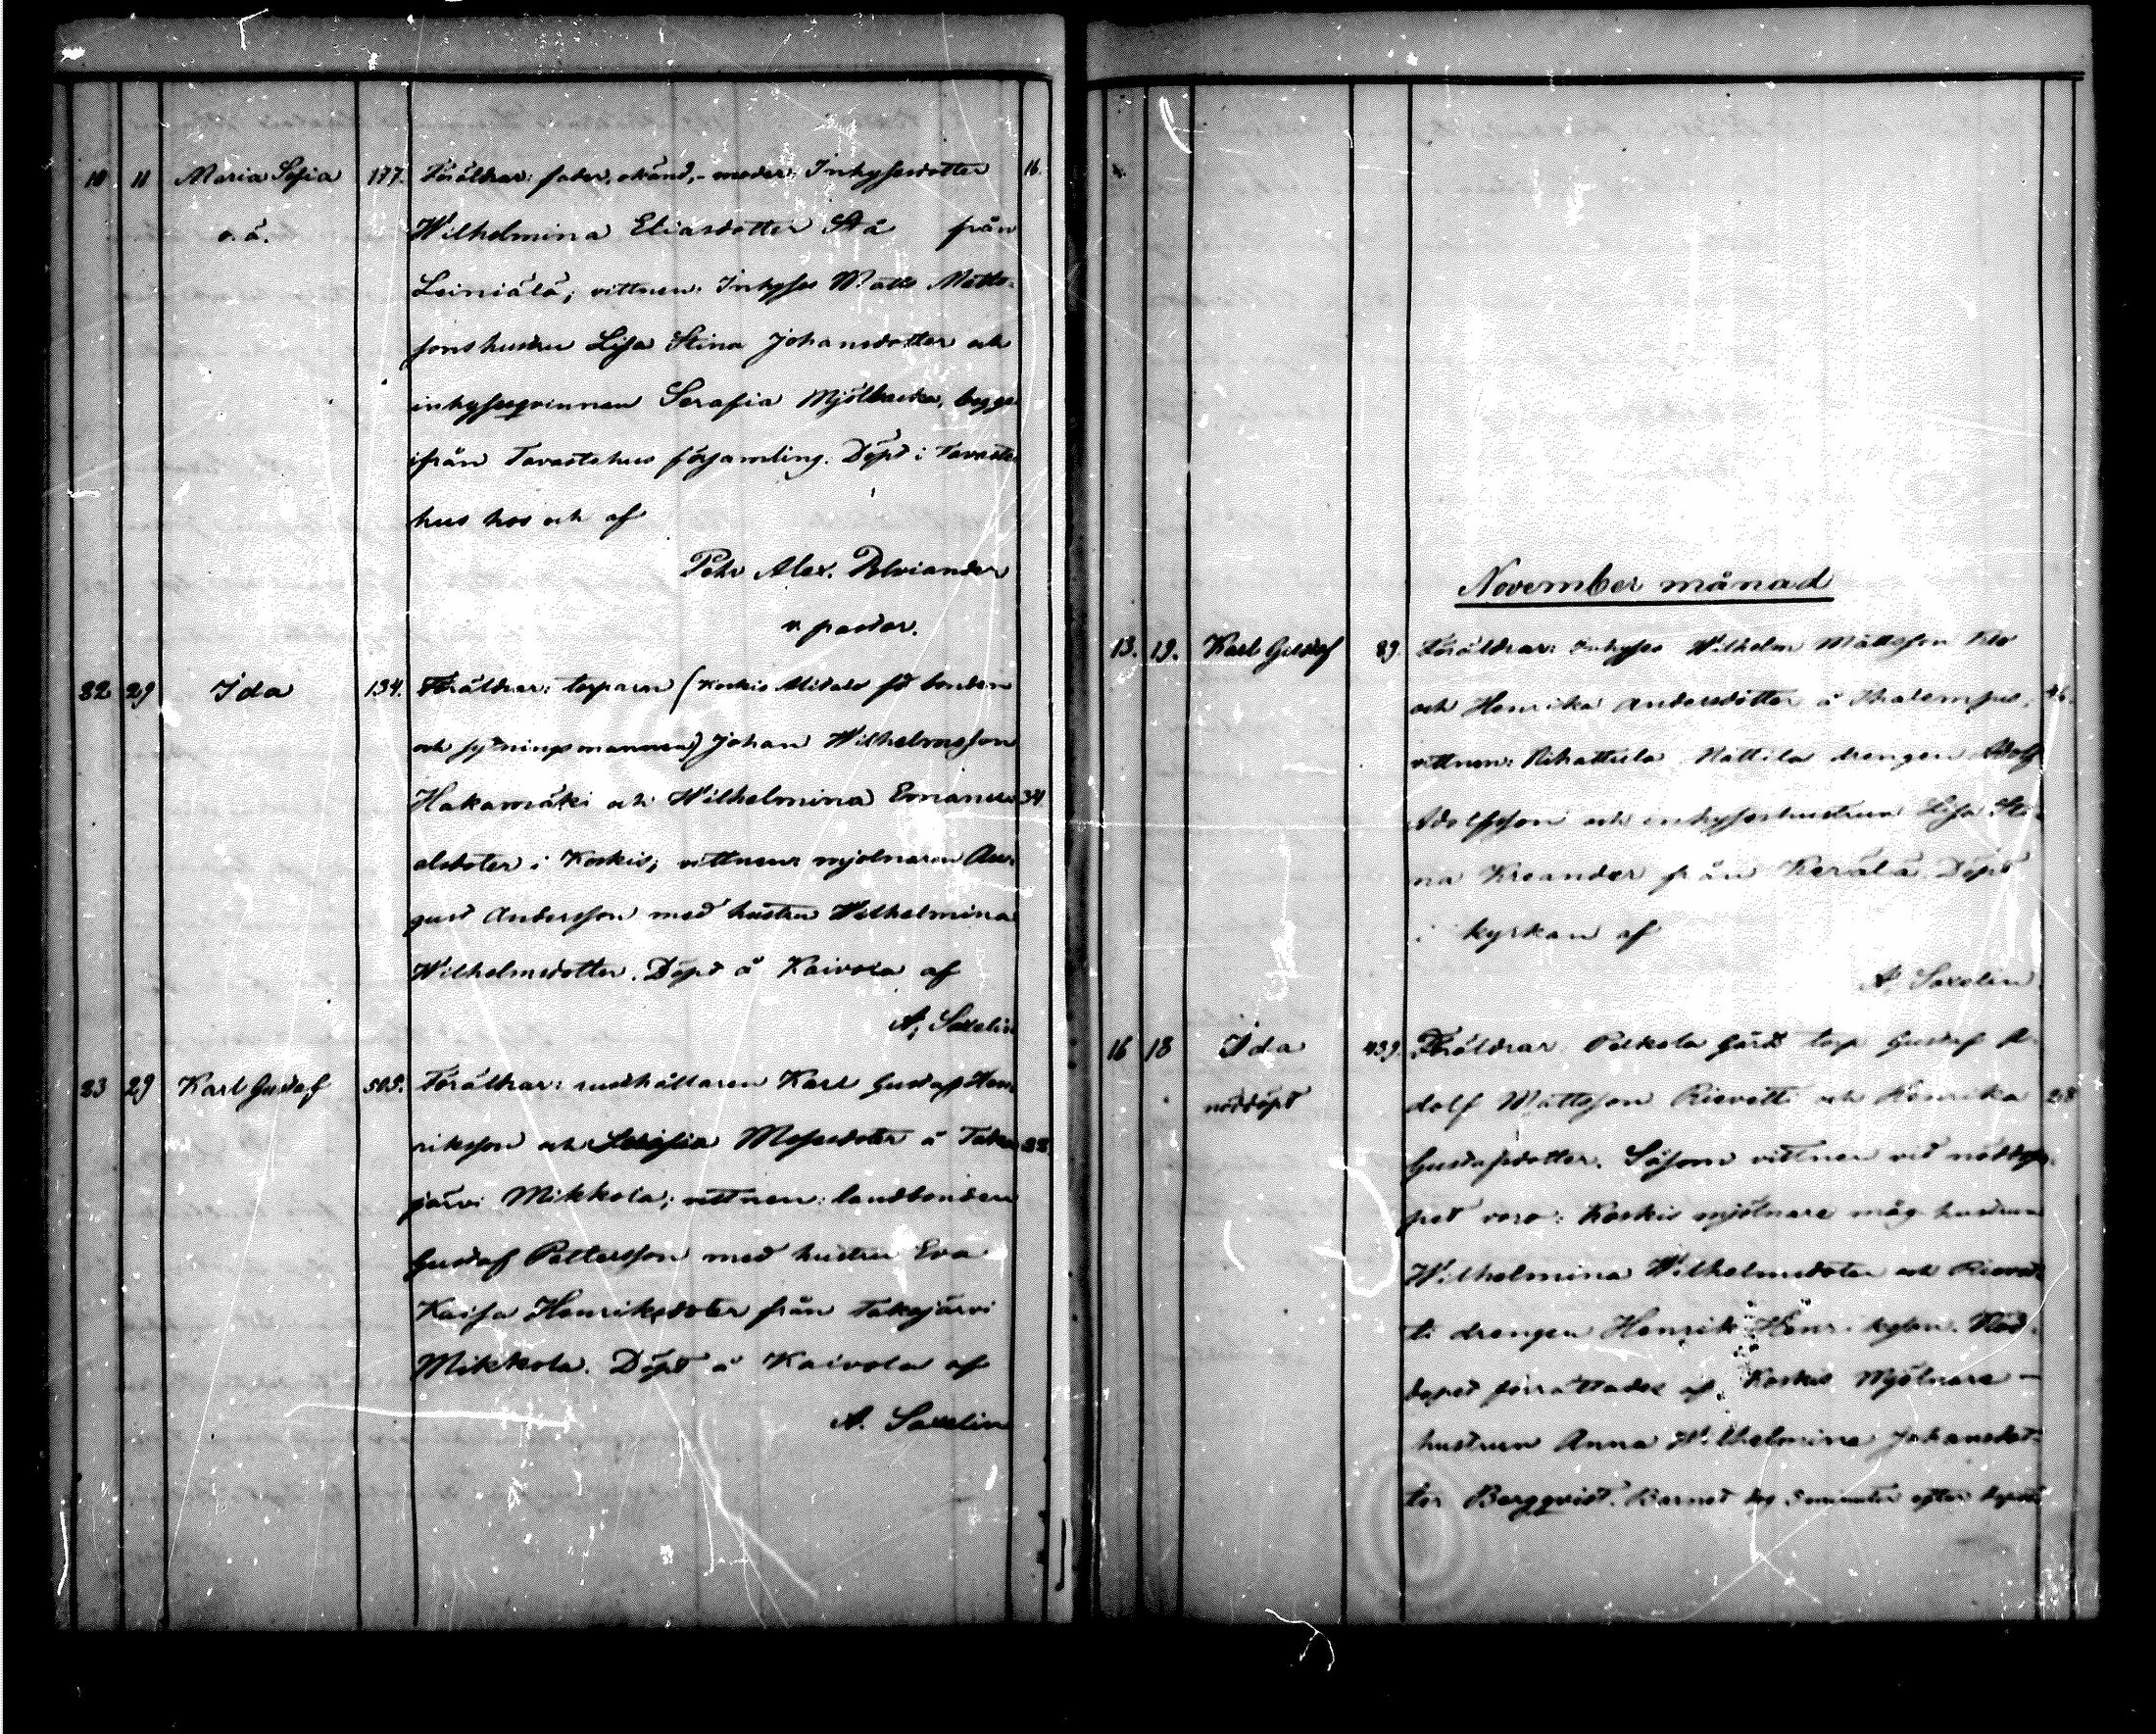 10. 11 Maria Sofia 177. Föräldrar: fader, okänd, - moder: Inhysesdotter 16.
o.ä. Wilhelmina Eliasdotter Stå från
Leiniälä; vittnen: Inhyses Matts Matts-
sons hustru Lisa Stina Johansdotter och
inhysesqvinnan Serafia Mjölbacka, begge
ifrån Tavastehus församling. Döpt i Tavaste
hus hos och af
Petr Alex. Relviander
v. pastor.
22 29 Ida 134. Föräldrar: torparen (Koskis Alitalo fd bonden
och sytningsmannen) Johan Wilhelmsson
Hakamäki och Wilhelmina Emanu- 34
elsdoter i Koskis; vittnen: mjolnaren Au-
gust Andersson med hustru Wilhelmina
Wilhelmsdotter. Döpt å Kaivola af
A. Saxelin
23 29 Karl Gustaf 509. Föräldrar: rusthållaren Karl Gustaf Hen-
riksson och Lovisa Mosesdoter å Taka
järvi Mikkola; vittnen: landbonden
Gustaf Pettersson med hustru Eva
Kaisa Henriksdoter från Takajärvi
Mikkola. Döpt å Kaivola af
A. Saxelin
November månad
13. 19. Karl Gustaf 89. Föräldrar: Inhyses Wilhelm Mattsson
och Henrika Andersdotter å
vittnen: Rihattula Mattila drengen Adolf
Adolfsson och inhyseshustrun Lisa Sti-
na Kreander från Kerälä. Döpt
i kyrkan af
A. Saxelin
16 18 Ida 439. Föräldrar: Pelkola Gård torp. Gustaf A-
nöddöpt dolf Mattsson Rievetti och Henrika 28
Gustafsdotter. Såsom vittnen vid nöddo-
pet voro: Koskis mjölnare måg hustrun
Wilhelmina Wilhelmsdoter och Rievet
ti drengen Henrik Henriksson. Nöd-
dopet förrättades af Koskis Mjölnare-
hustrun Anna Wilhelmina Johansdot-
ter Bergqvist. Barnet dog 5 minuter efter dopet.